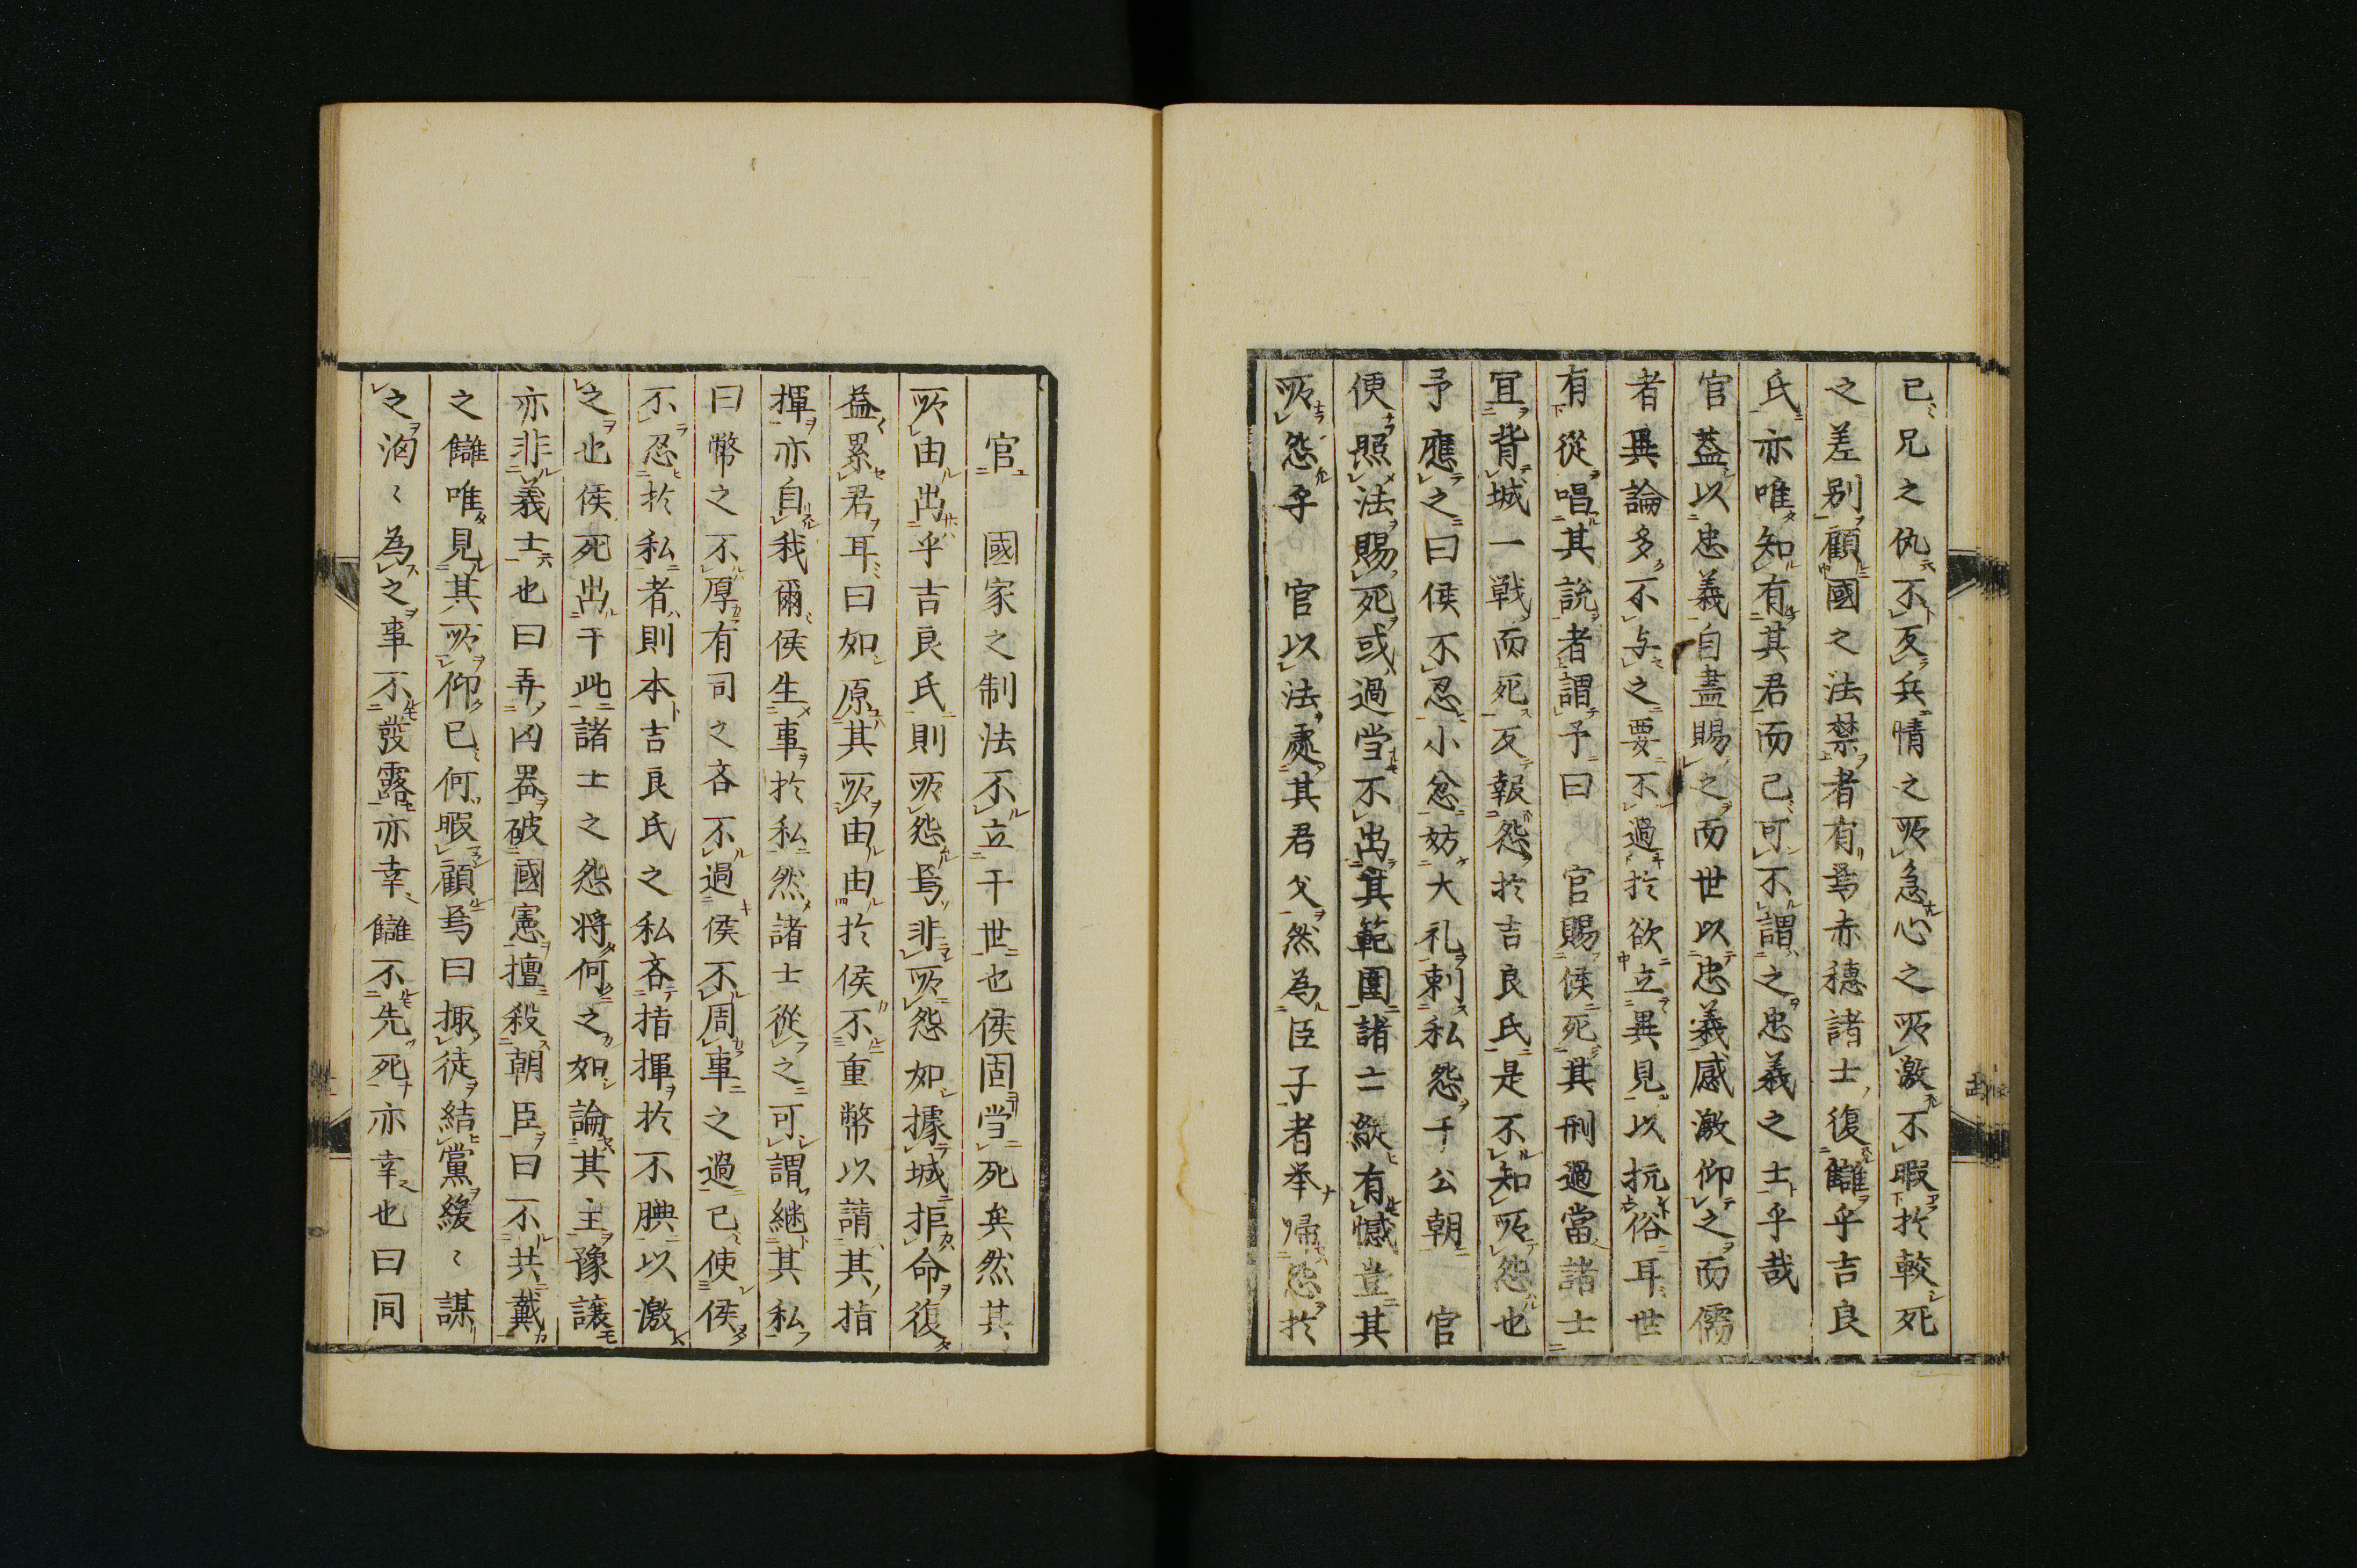 已兄之仇不反兵情之所急心之所激不暇於較死
之差別顧國之法禁者有焉赤穗諸士復讎乎吉良
氏亦唯知有其君而已可不謂之忠義之士乎哉
官葢以忠義自盡賜之而世以忠義感激仰之而儒
者異論多不与之要不過於欲立異見以抗俗耳世
有從唱其說者謂予曰　官賜侯死其刑過當諸士
冝背城一戦而死反報怨於吉良氏是不知所怨也
予應之曰侯不忍小忿妨大礼刺私怨于公朝　官
便照法賜死或過當不出其範圍諸士縱有憾豈其
所怨乎　官以法處其君父然為臣子者举帰怨於
官　國家之制法不立于世也侯固当死矣然其
所由出乎吉良氏則所怨焉非所怨如據城拒命復
益累君耳曰如原其所由由於侯不重幣以請其指
揮亦自我爾侯生事於私然諸士從之可謂継其私
曰幣之不厚有司之吝不過侯不周事之過已使侯
不忍於私者則本吉良氏之私吝指揮於不腆以激
之也侯死出于此諸士之怨将何之如論其主豫譲
亦非義士也曰弄凶器破國憲擅殺朝臣曰不共戴
之讎唯見其所仰已何暇顧焉曰掫徒結黨緩〻謀
之洶〻為之事不發露亦幸讎不先死亦幸也曰同